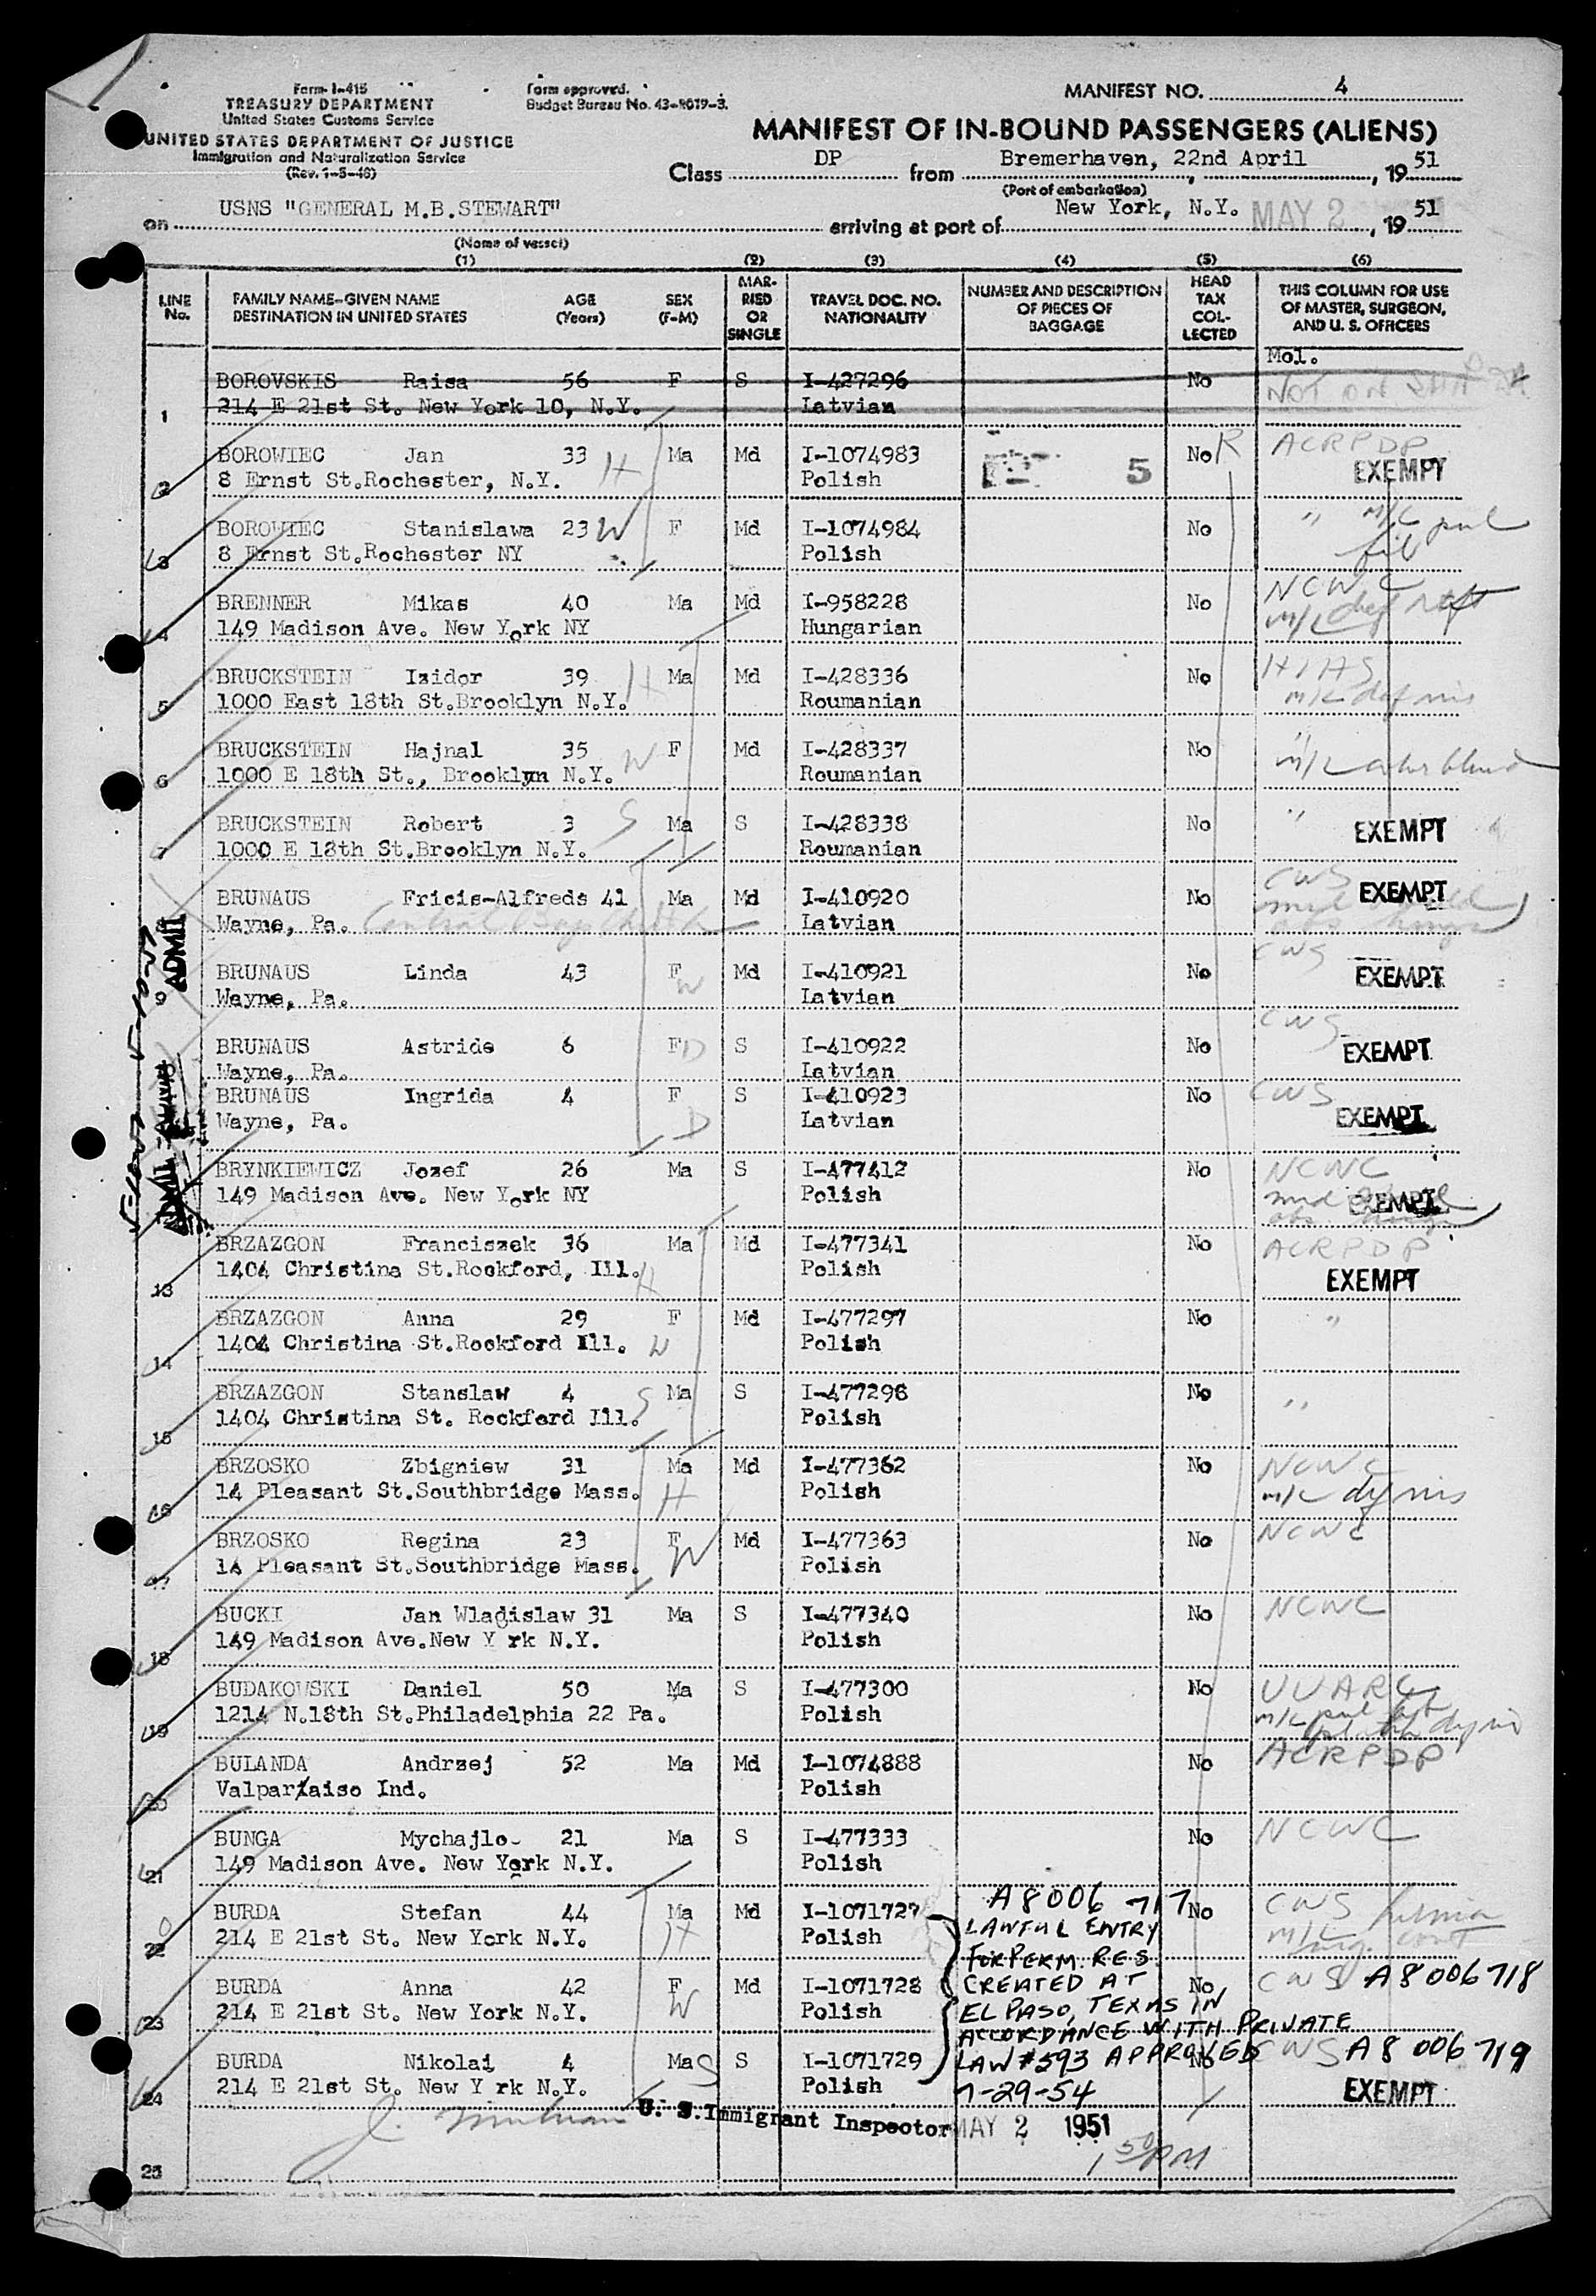 Form I-415
TREASURY DEPARTMENT
United States Customs Service
UNITED STATES DEPARTMENT OF JUSTICE
Immigration and Naturalization Service
(Rev. 1-5-48)
Form approved.
Budget Bureau No. 43-R019-3.
MANIFEST NO. 4
MANIFEST OF IN-BOUND PASSENGERS (ALIENS)
Class DP from Bremerhaven, 22nd April, 19 51
(Port of embarkation)
on USNS "GENERAL M.B.STEWART" arriving at port of New York, N.Y. MAY 2, 19 51
(Name of vessel)
(1) (2) (3) (4) (5) (6)
LINE No. FAMILY NAME-GIVEN NAME DESTINATION IN UNITED STATES AGE (Years) SEX (F-M) MARRIED OR SINGLE TRAVEL DOC. NO. NATIONALITY NUMBER AND DESCRIPTION OF PIECES OF BAGGAGE HEAD TAX COLLECTED THIS COLUMN FOR USE OF MASTER, SURGEON, AND U. S. OFFICERS
Mol.
BOROVSKIS Raisa 56 F S I-427296 No NOT ON
1 214 E 21st St. New York 10, N.Y. Latvian
BOROWIEC Jan 33 H Ma Md I-1074983 5 No R ACRPDP
2 8 Ernst St.Rochester, N.Y. Polish EXEMPT
BOROWIEC Stanislawa 23 W F Md I-1074984 No " m/c
3 8 Ernst St.Rochester NY Polish
BRENNER Mikas 40 Ma Md I-958228 No NCWC
4 149 Madison Ave. New York NY Hungarian m/c
BRUCKSTEIN Izidor 39 H Ma Md I-428336 No HIAS
5 1000 East 18th St.Brooklyn N.Y. Roumanian m/c
BRUCKSTEIN Hajnal 35 W F Md I-428337 No "
6 1000 E 18th St., Brooklyn N.Y. Roumanian m/c
BRUCKSTEIN Robert 3 S Ma S I-428338 No " EXEMPT
7 1000 E 18th St.Brooklyn N.Y. Roumanian
BRUNAUS Fricis-Alfreds 41 Ma Md I-410920 No CWS EXEMPT
8 Wayne, Pa. Latvian
BRUNAUS Linda 43 F W Md I-410921 No CWS EXEMPT
9 Wayne, Pa. Latvian
ADMIT
BRUNAUS Astride 6 F D S I-410922 No CWS EXEMPT
Wayne, Pa. Latvian
BRUNAUS Ingrida 4 F D S I-410923 No CWS EXEMPT
Wayne, Pa. Latvian
ADMIT
BRYNKIEWICZ Jozef 26 Ma S I-477412 No NCWC
149 Madison Ave. New York NY Polish EXEMPT
BRZAZGON Franciszek 36 Ma Md I-477341 No ACRPDP
13 1404 Christina St.Rockford, Ill. H Polish EXEMPT
BRZAZGON Anna 29 F Md I-477297 No "
14 1404 Christina St.Rockford Ill. W Polish
BRZAZGON Stanslaw 4 S Ma S I-477298 No "
15 1404 Christina St. Rockford Ill. Polish
BRZOSKO Zbigniew 31 Ma Md I-477362 No NCWC
16 14 Pleasant St.Southbridge Mass. H Polish m/c
BRZOSKO Regina 23 F Md I-477363 No NCWC
17 14 Pleasant St.Southbridge Mass. W Polish
BUCKI Jan Wladislaw 31 Ma S I-477340 No NCWC
18 149 Madison Ave.New Y rk N.Y. Polish
BUDAKOWSKI Daniel 50 Ma S I-477300 No UUARC
19 1214 N.18th St.Philadelphia 22 Pa. Polish m/c
BULANDA Andrzej 52 Ma Md I-1074888 No ACRPDP
20 Valparaiso Ind. Polish
BUNGA Mychajlo 21 Ma S I-477333 No NCWC
21 149 Madison Ave. New York N.Y. Polish
BURDA Stefan 44 Ma Md I-1071727 A8006 717 No CWS
22 214 E 21st St. New York N.Y. H Polish LAWFUL ENTRY m/c
FOR PERM. RES.
BURDA Anna 42 F Md I-1071728 CREATED AT No CWS A8006718
23 214 E 21st St. New York N.Y. W Polish EL PASO, TEXAS IN
ACCORDANCE WITH PRIVATE
BURDA Nikolai 4 Ma S S I-1071729 LAW #593 APPROVED No CWS A8 006 719
24 214 E 21st St. New Y rk N.Y. Polish 7-29-54 EXEMPT
J. U. S. Immigrant Inspector MAY 2 1951
1 50 PM
25